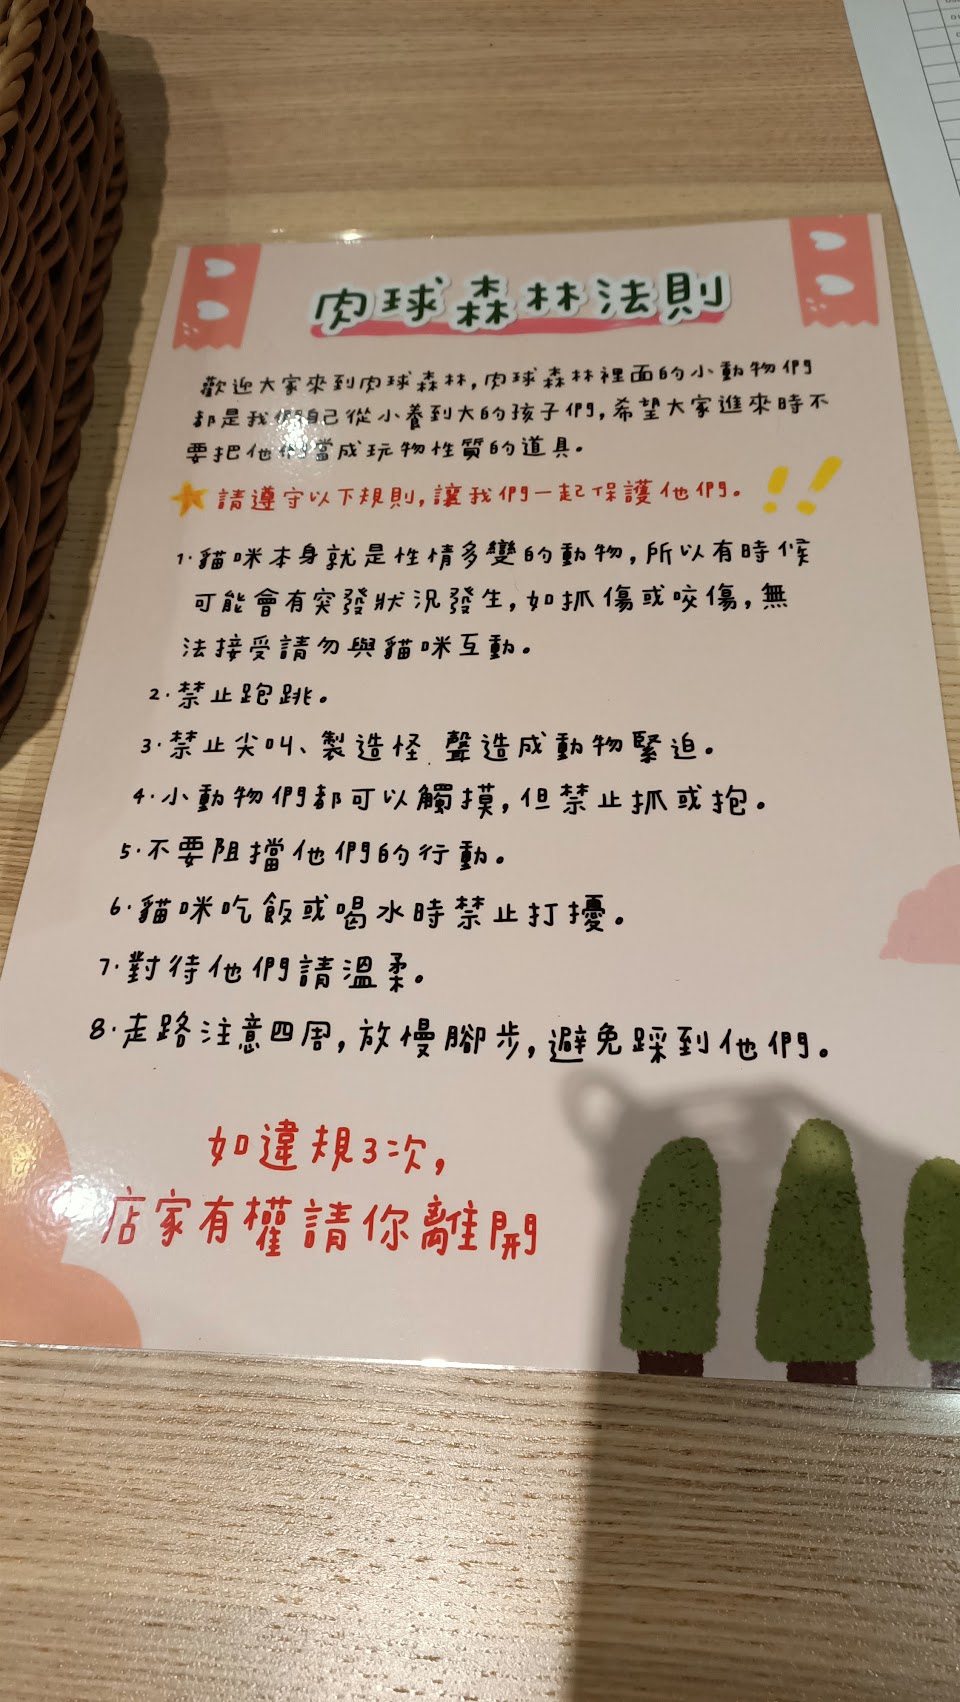 肉球森林法則
歡迎大家來到肉球森林,肉球森林裡面的小動物們
都是我們自己從小養到大的孩子們,希望大家進來時不
要把他們當成玩物性質的道具。
請遵守以下規則,讓我們一起保護他們。!!
1.貓咪本身就是性情多變的動物,所以有時候
可能會有突發狀況發生,如抓傷或咬傷,無
法接受請勿與貓咪互動。
2.禁止跑跳。
3.禁止尖叫、製造怪聲造成動物緊迫。
4.小動物們都可以觸摸,但禁止抓或抱。
5.不要阻擋他們的行動。
6.貓咪吃飯或喝水時禁止打擾。
7.對待他們請溫柔。
8.走路注意四周,放慢腳步,避免踩到他們。
如違規3次,
店家有權請你離開